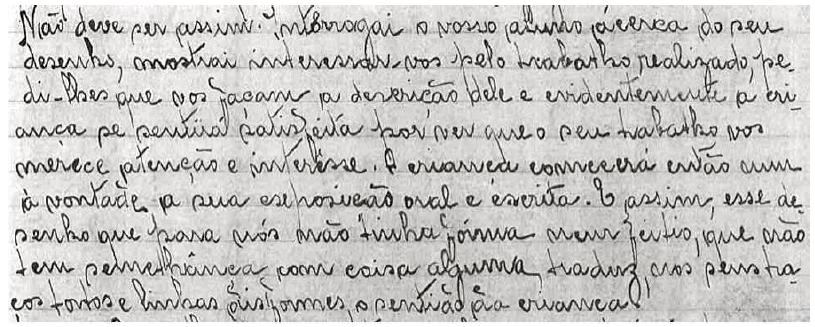 Não deve ser assim. Interrogai o vosso aluno ácerca do seu
desenho, mostrai interessar-vos pelo trabalho realizado, pe-
di-lhes que vos façam a descrição dele e evidentemente a cri-
ança se sentirá satisfeita por ver que o seu trabalho vos
merece atenção e interêsse. A criança começará então com
à vontade a sua exposição oral e escrita. E assim, esse de-
senho que para nós não tinha fórma nem feitio, que não
tem semelhança com coisa alguma, traduz, nos seus tra-
ços tortos e linhas disformes, o sentido da criança.